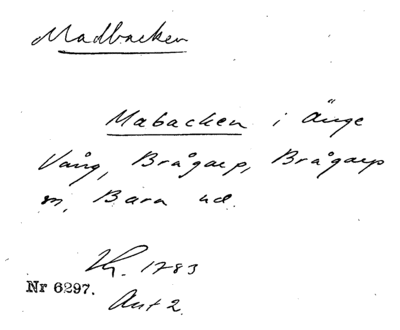 Madbacken
Mabacken i Änge
Vång, Brågarp, Brågarp
sn, Bara hd.
Lh. 1783
Nr 6297.
Akt 2